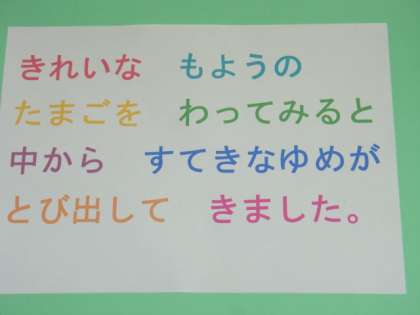 きれいな　もようの
たまごを　わってみると
中から　すてきなゆめが
とび出して　きました。